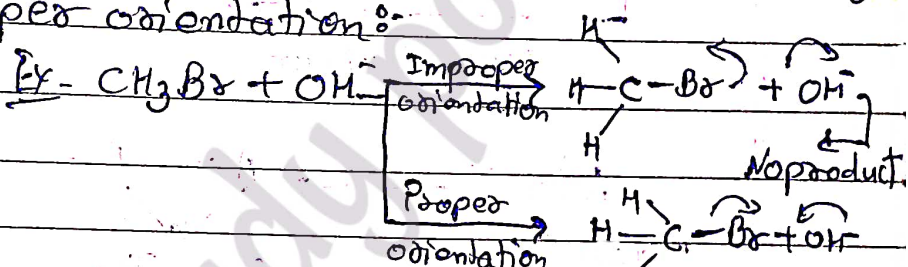 per orientation :-
H
Ex- CH3Br + OH- Improper orientation H-C-Br + OH-
H
No product.
Proper orientation H
H-C-Br + OH-